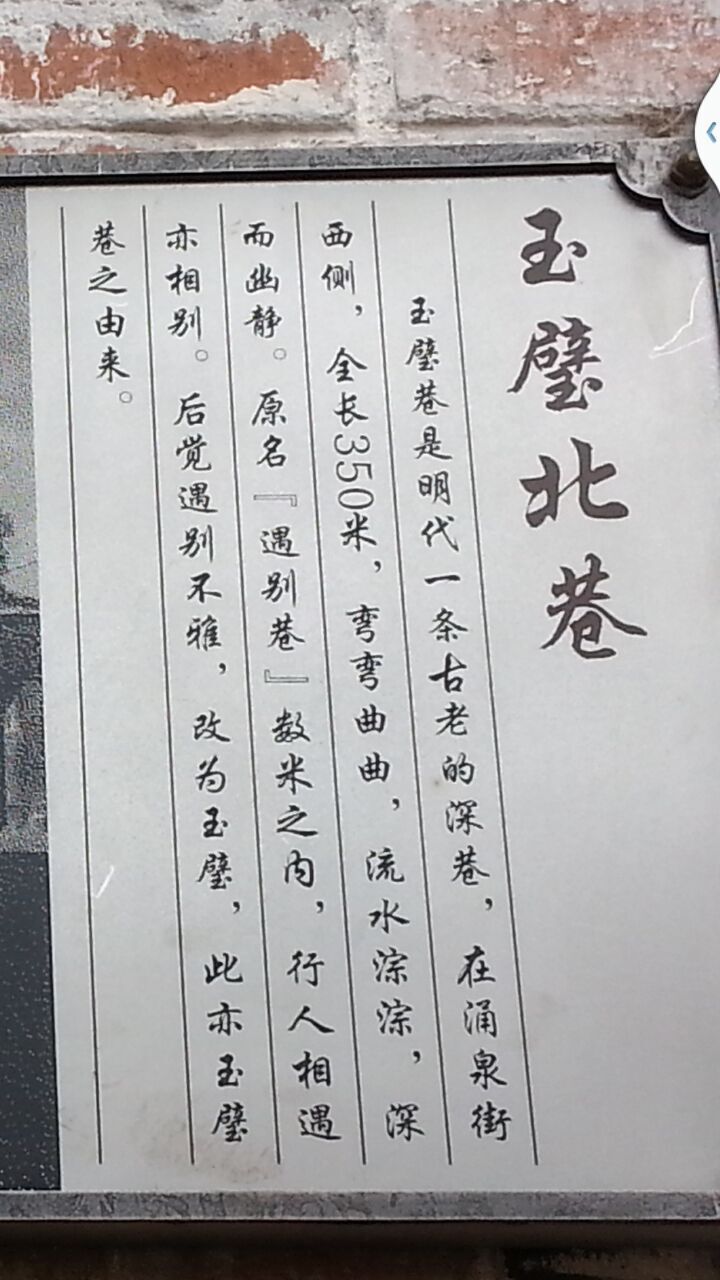 玉璧北巷
玉璧巷是明代一条古老的深巷，在涌泉街
西侧，全长350米，弯弯曲曲，流水淙淙，深
而幽静。原名『遇别巷』数米之内，行人相遇
亦相别。后觉遇别不雅，改为玉璧，此亦玉璧
巷之由来。